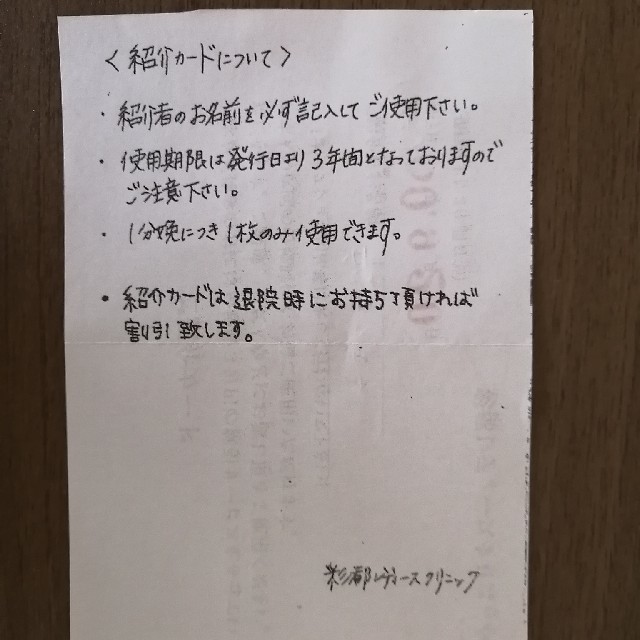 〈紹介カードについて〉
・紹介者のお名前を必ず記入してご使用下さい。
・使用期限は発行日より3年間となっておりますので
ご注意下さい。
・1分娩につき1枚のみ使用できます。
・紹介カードは退院時にお持ち頂ければ
割引致します。
彩都レディースクリニック